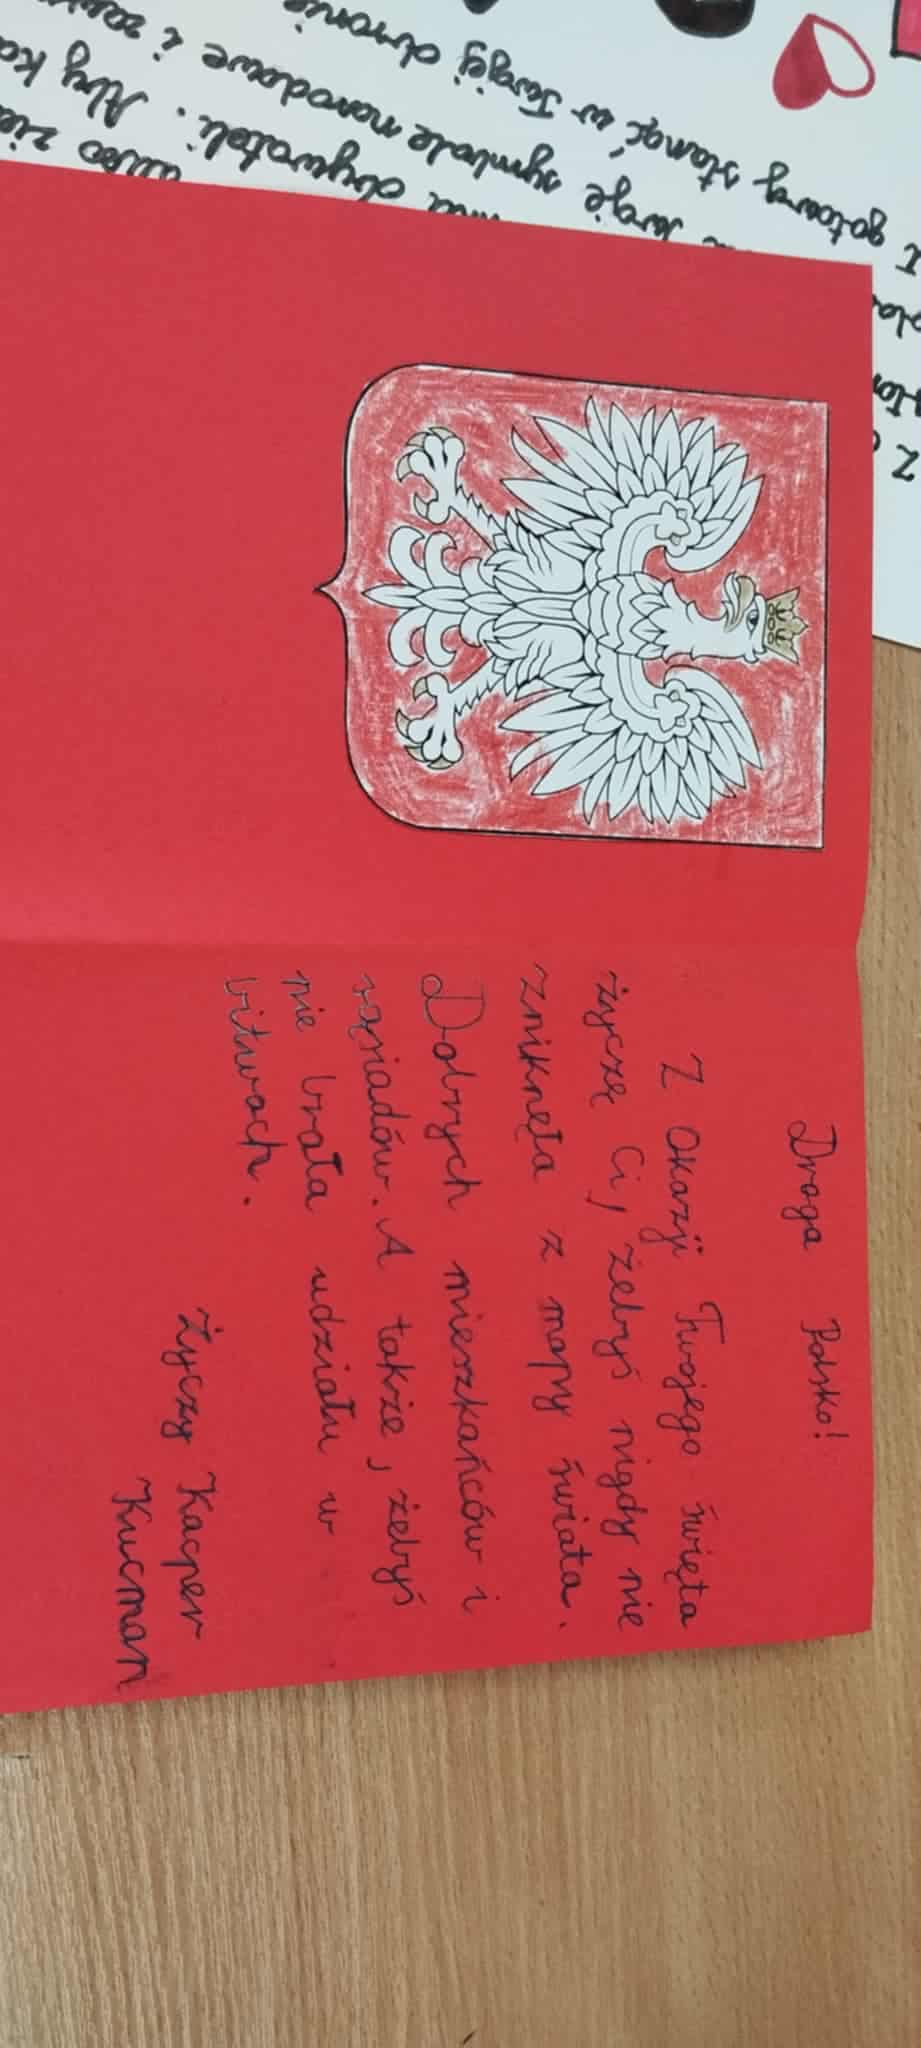 Droga Polsko!
Z okazji Twojego święta
życzę Ci, żebyś nigdy nie
zniknęła z mapy świata.
Dobrych mieszkańców i
sąsiadów. A także, żebyś
nie brała udziału w
bitwach.
Życzy Kacper
Kucman
Aby
obywateli.
symbole narodowe i
gotowy stanąć w Twojej obronie